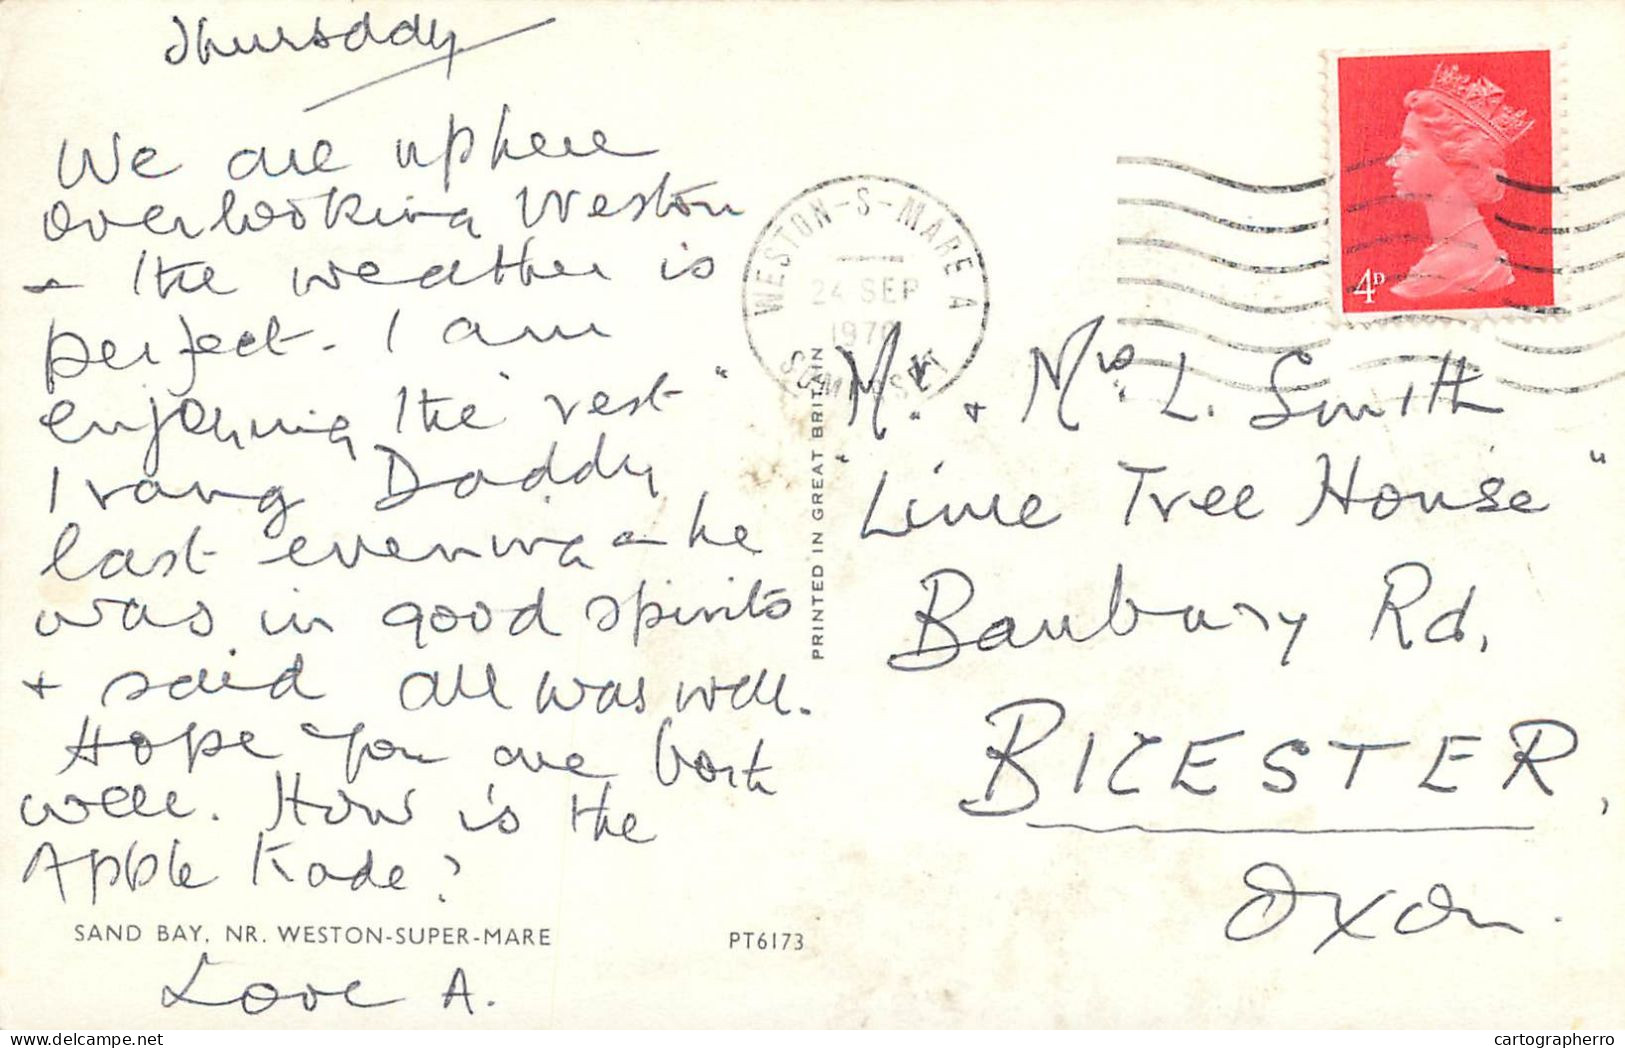 Thursday
We are up here
overlooking Weston
- the weather is
perfect. I am
enjoying the "rest"
I rang Daddy
last evening - he
was in good spirits
+ said all was well.
Hope you are both
well. How is the
Apple Trade?
SAND BAY, NR. WESTON-SUPER-MARE
PT6173
Love A.
PRINTED IN GREAT BRITAIN
WESTON-S-MARE A
24 SEP
1970
SOMERSET
4D
Mr. + Mrs. L. Smith
"Lime Tree House"
Banbury Rd,
BICESTER,
Oxon.
cartographerro